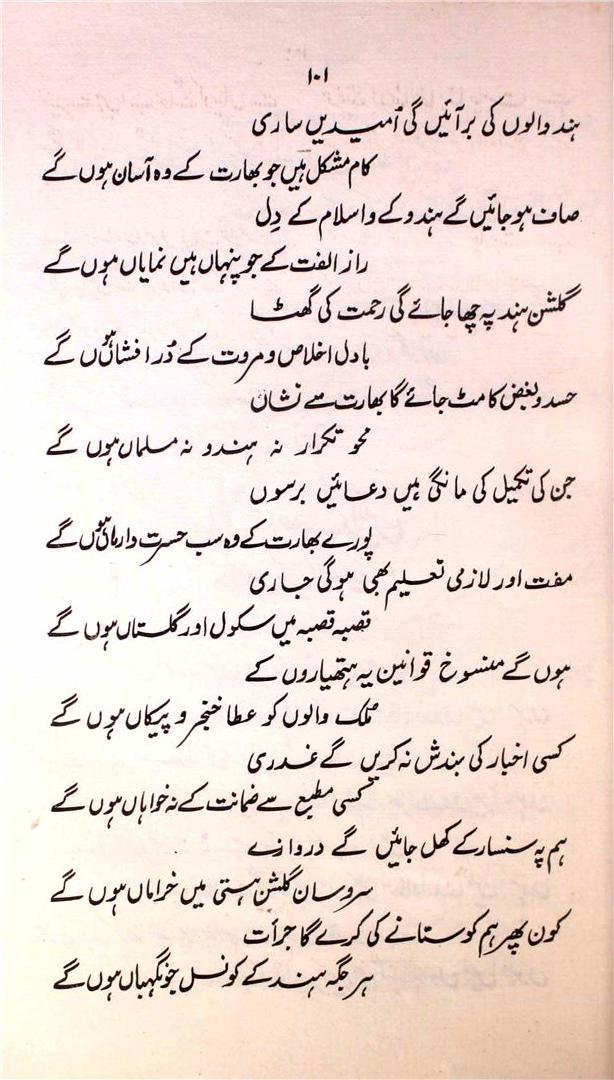 ۱۰۱
ہند والوں کی بر آئیں گی اُمیدیں ساری
کام مشکل ہیں جو بھارت کے وہ آسان ہوں گے
صاف ہو جائیں گے ہندو کے و اسلام کے دِل
راز الفت کے جو پنہاں ہیں نمایاں ہوں گے
گلشنِ ہند پہ چھا جائے گی رحمت کی گھٹا
بادل اخلاص و مروت کے دُر افشاں ہوں گے
حسد و بغض کا مٹ جائے گا بھارت سے نشاں
محو تکرار نہ ہندو نہ مسلماں ہوں گے
جن کی تکمیل کی مانگی ہیں دعائیں برسوں
پورے بھارت کے وہ سب حسرت و ارماں ہوں گے
مفت اور لازمی تعلیم بھی ہوگی جاری
قصبہ قصبہ میں سکول اور گلستاں ہوں گے
ہوں گے منسوخ قوانین یہ ہتھیاروں کے
مُلک والوں کو عطا خنجر و پیکاں ہوں گے
کسی اخبار کی بندش نہ کریں گے غدری
کسی مطبع سے ضمانت کے نہ خواہاں ہوں گے
ہم پہ سنسار کے کھل جائیں گے دروازے
سرو ساں گلشنِ ہستی میں خراماں ہوں گے
کون پھر ہم کو ستانے کی کرے گا جرأت
ہر جگہ ہند کے کونسل جو نگہباں ہوں گے